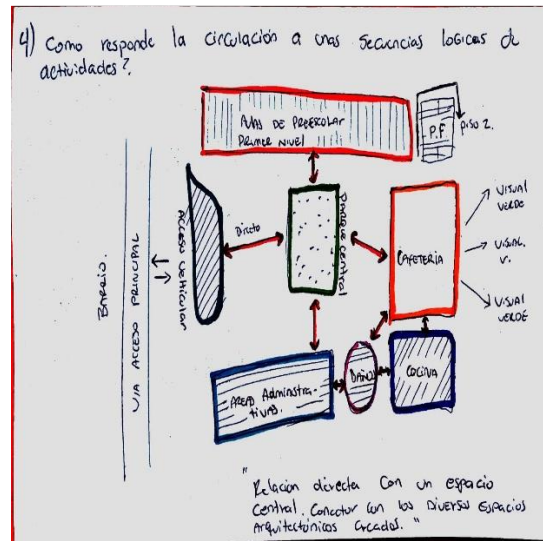 4) Como responde la circulación a unas secuencias logicas de
actividades?
AULAS DE PREESCOLAR
PRIMER NIVEL
P.F
PISO 2.
BARRIO.
VIA ACCESO PRINCIPAL
ACCESO VEHICULAR
Directo
PARQUE CENTRAL
CAFETERIA
VISUAL
VERDE
VISUAL.
V.
VISUAL
VERDE
AREAS Administra-
tivas.
BAÑOS
COCINA
"Relación directa Con un espacio
Central. Conector con los Diversos Espacios
Arquitectónicos creados."